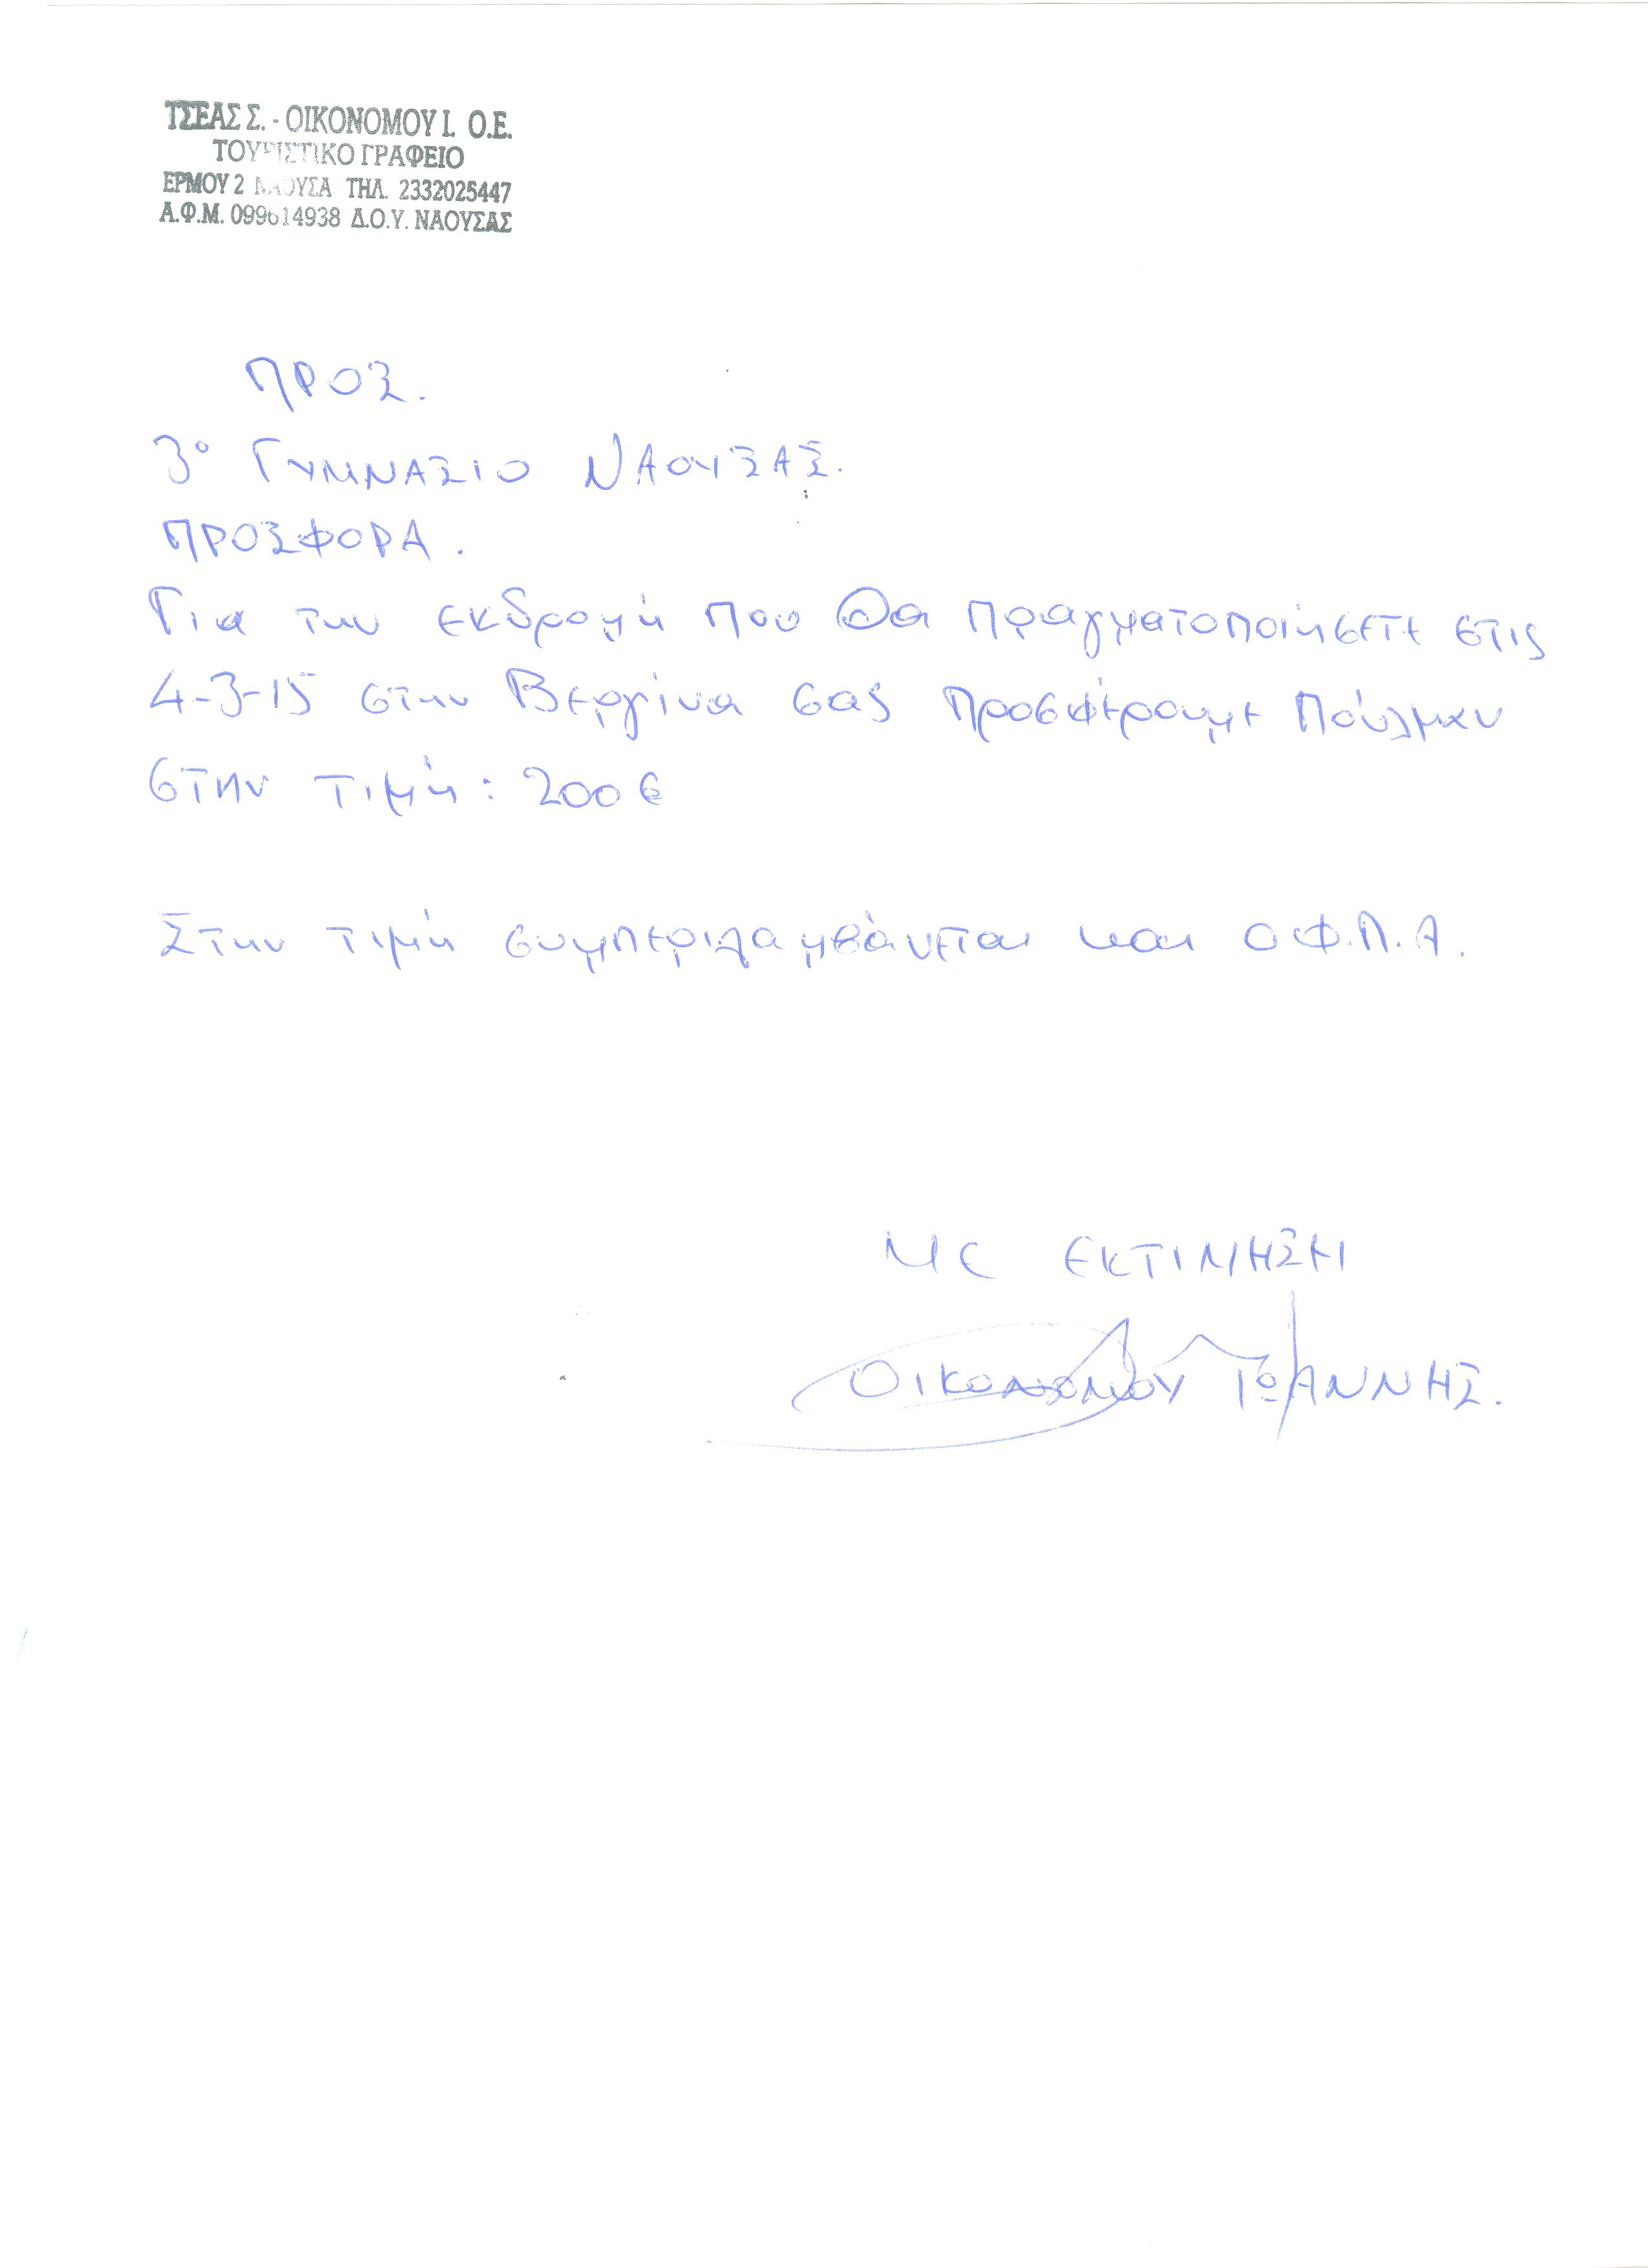 ΤΣΕΑΣ Σ. - ΟΙΚΟΝΟΜΟΥ Ι. Ο.Ε.
ΤΟΥΡΙΣΤΙΚΟ ΓΡΑΦΕΙΟ
ΕΡΜΟΥ 2 ΝΑΟΥΣΑ ΤΗΛ. 2332025447
Α.Φ.Μ. 099614938 Δ.Ο.Υ. ΝΑΟΥΣΑΣ
ΠΡΟΣ.
3ο ΓΥΜΝΑΣΙΟ ΝΑΟΥΣΑΣ.
ΠΡΟΣΦΟΡΑ.
Για την εκδρομή που θα πραγματοποιήσετε στις
4-3-15 στην Βεργίνα σας προσφέρουμε πούλμαν
στην τιμή: 200€
Στην τιμή συμπεριλαμβάνεται και ο Φ.Π.Α.
Με ΕΚΤΙΜΗΣΗ
ΟΙΚΟΝΟΜΟΥ ΙΩΑΝΝΗΣ.